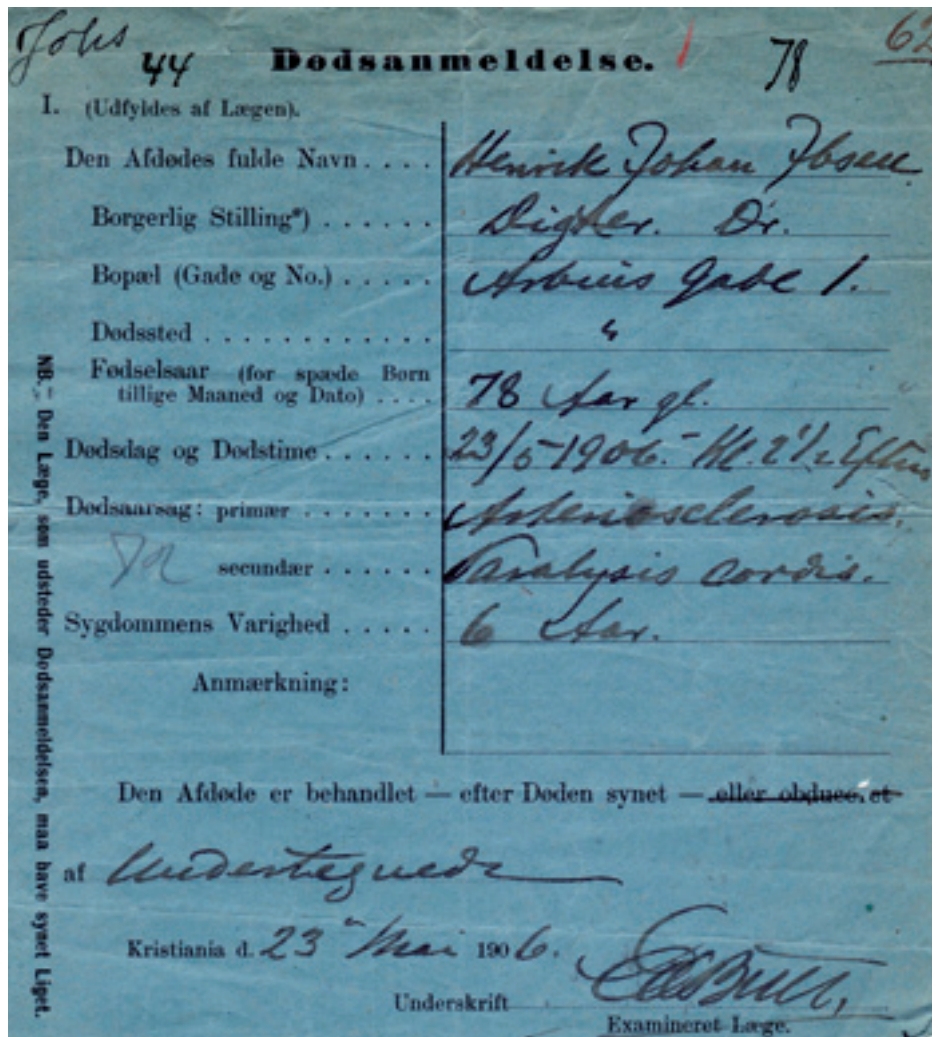 Johs 44 Dødsanmeldelse. 78 62
I. (Udfyldes af Lægen).
Den Afdødes fulde Navn . . . . Henrik Johan Ibsen
Borgerlig Stilling*) . . . . . . Digter. Dr.
Bopæl (Gade og No.) . . . . . Arbins Gade 1.
Dødssted . . . . . . . . . . . . . "
Fødselsaar (for spæde Børn
tillige Maaned og Dato) . . . . 78 Aar gl.
Dødsdag og Dødstime . . . . . . 23/5 1906. Kl. 2 1/2 Efterm
Dødsaarsag: primær . . . . . . . Arteriosclerosis.
secundær . . . . . . Paralysis cordis.
Sygdommens Varighed . . . . . 6 Aar.
Anmærkning:
Den Afdøde er behandlet — efter Døden synet — eller obduceret
af Undertegnede
Kristiania d. 23" Mai 1906.
Underskrift EdvBull,
Examineret Læge.
NB. - Den Læge, som udsteder Dødsanmeldelsen, maa have synet Liget.